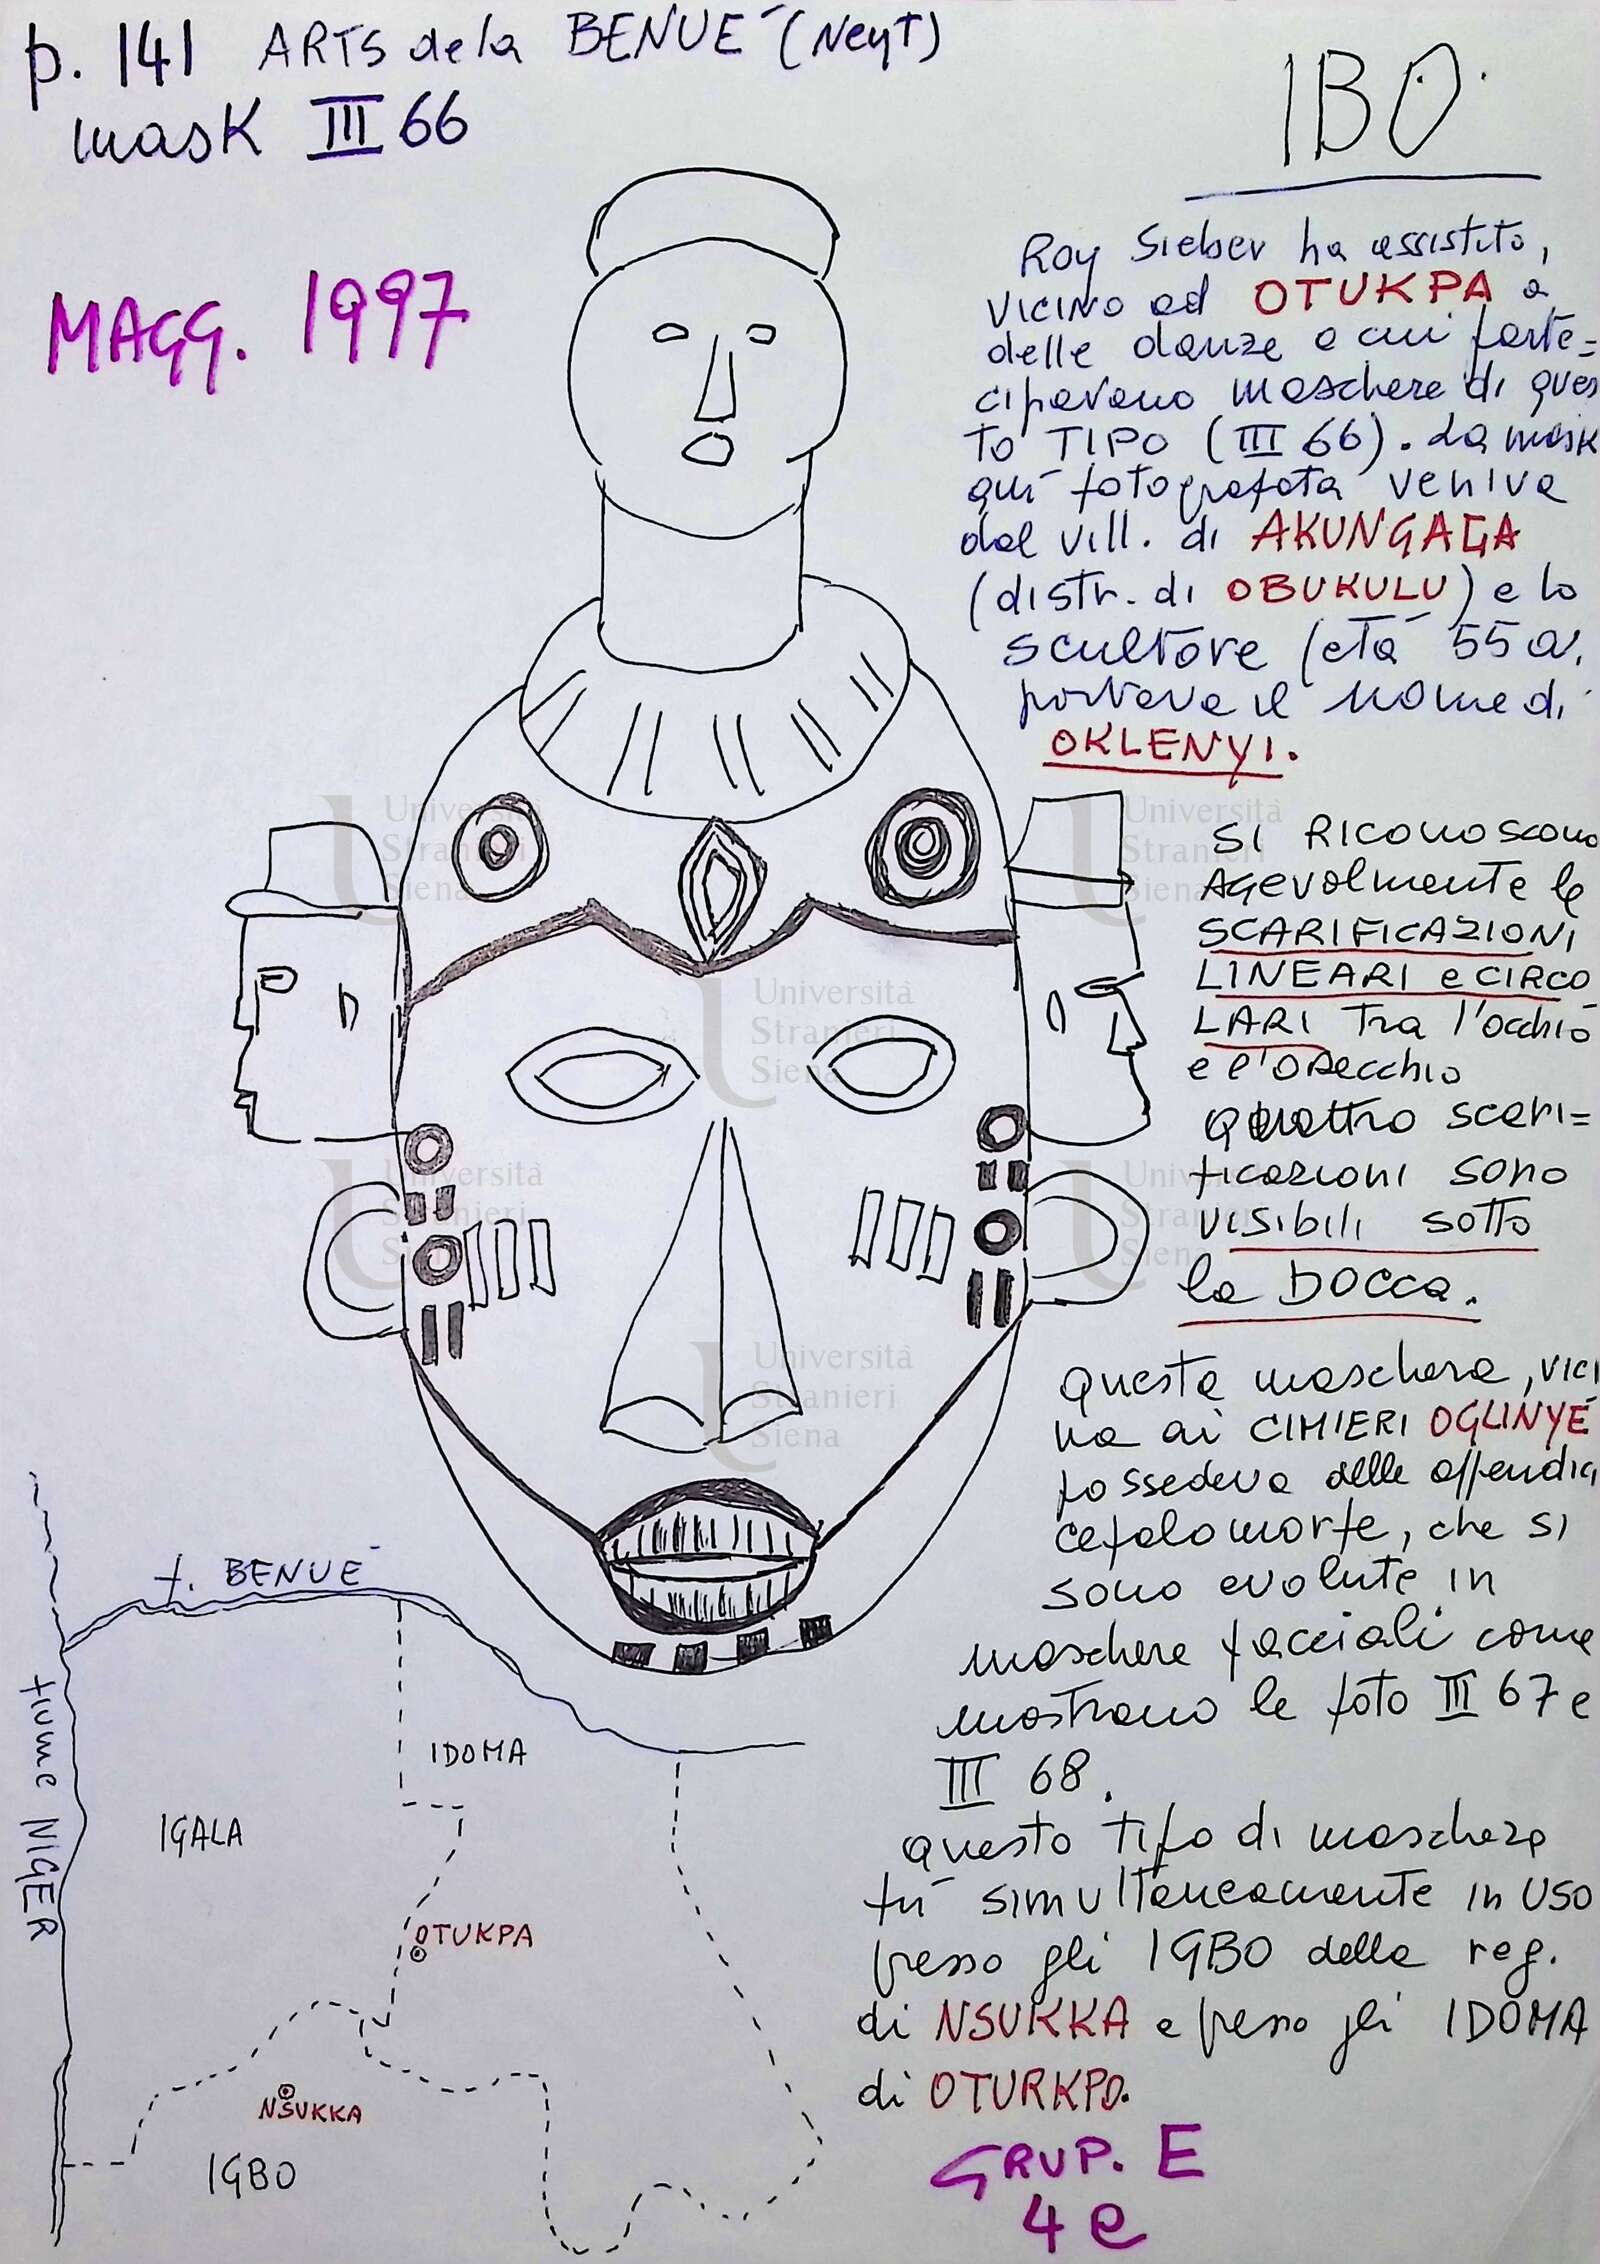 p. 141 ARTS de la BENUÉ (Neyt)
mask III 66
IBO.
MAGG. 1997
Roy Sieber ha assistito,
vicino ad OTUKPA a
delle danze a cui parte=
cipavano maschere di ques
to TIPO (III 66). La mask
qui fotografata veniva
dal vill. di AKUNGAGA
(distr. di OBUKULU) e lo
scultore (età 55 a.
portava il nome di
OKLENYI.
SI RICONOSCONO
AGEVOLMENTE le
SCARIFICAZIONI
LINEARI e CIRCO
LARI Tra l'occhio
e l'orecchio
Quattro scari=
ficazioni sono
visibili sotto
la BOCCA.
Questa maschera, vici
na ai CIMIERI OGLINYE
possedeva delle appendici
cefalomorfe, che si
sono evolute in
maschere facciali come
mostrano le foto III 67 e
III 68.
questo tipo di maschera
fu simultaneamente in uso
presso gli IGBO della reg.
di NSUKKA e presso gli IDOMA
di OTURKPO.
GRUP. E
4 e
f. BENUÉ
fiume NIGER
IDOMA
IGALA
OTUKPA
NSUKKA
IGBO
Università
Stranieri
Siena
Università
Stranieri
Siena
Università
Stranieri
Siena
Università
Stranieri
Siena
Università
Stranieri
Siena
Università
Stranieri
Siena